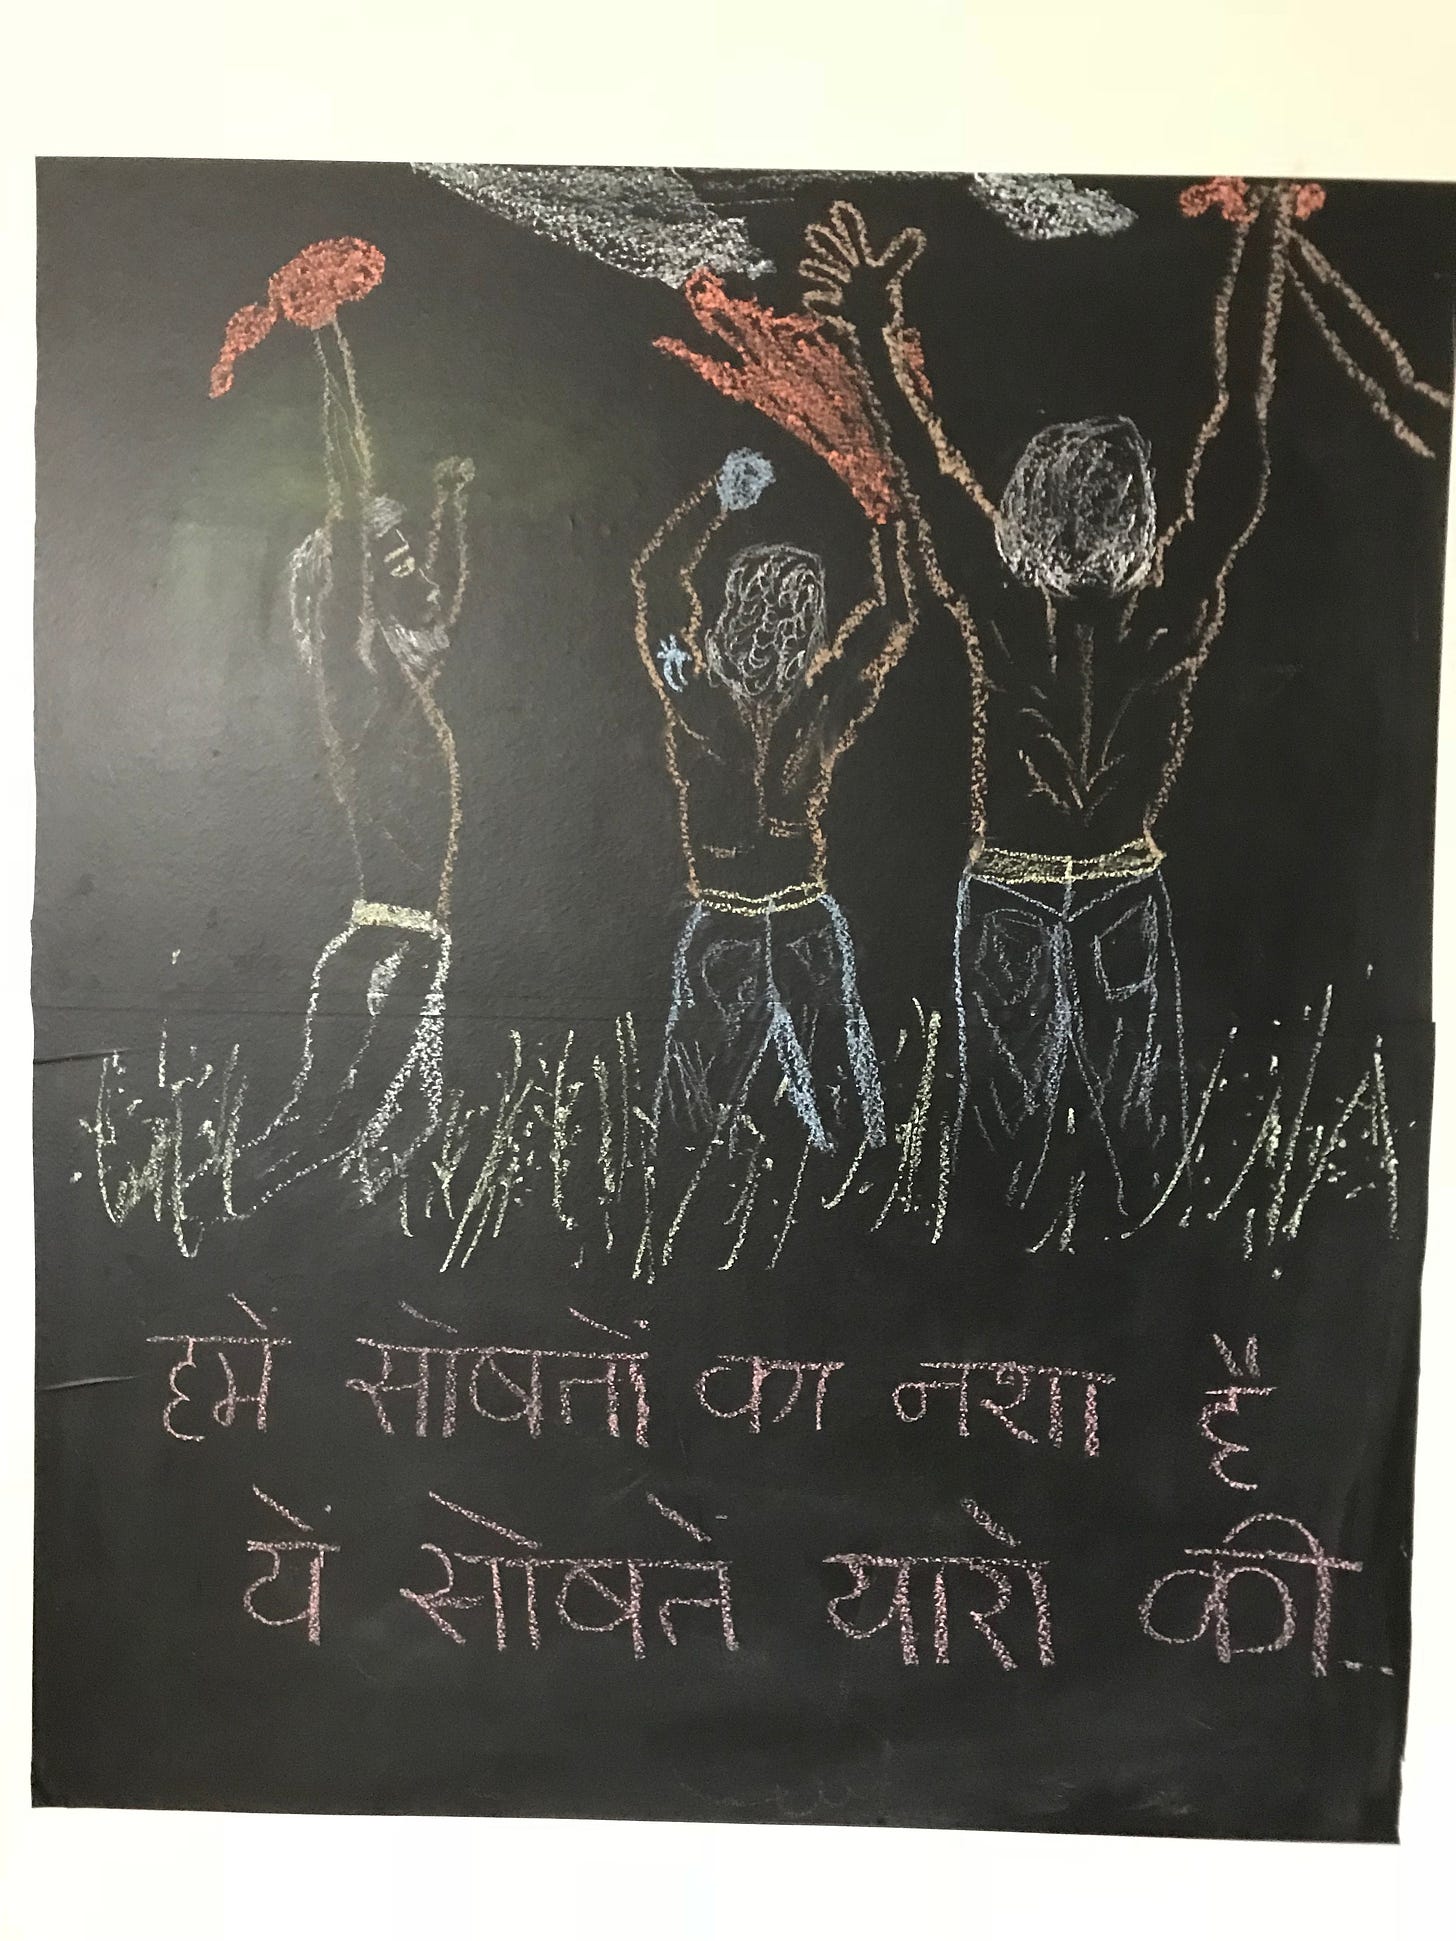 हमे सोबतों का नशा है
ये सोबतें यारो की...